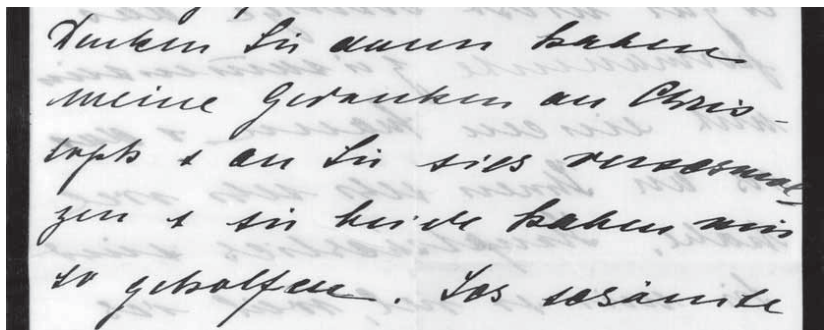 Denken Sie haben
meine Gedanken an Chris-
toph + an Sie sich verschmol-
zen + Sie beide haben mir
so geholfen. Das